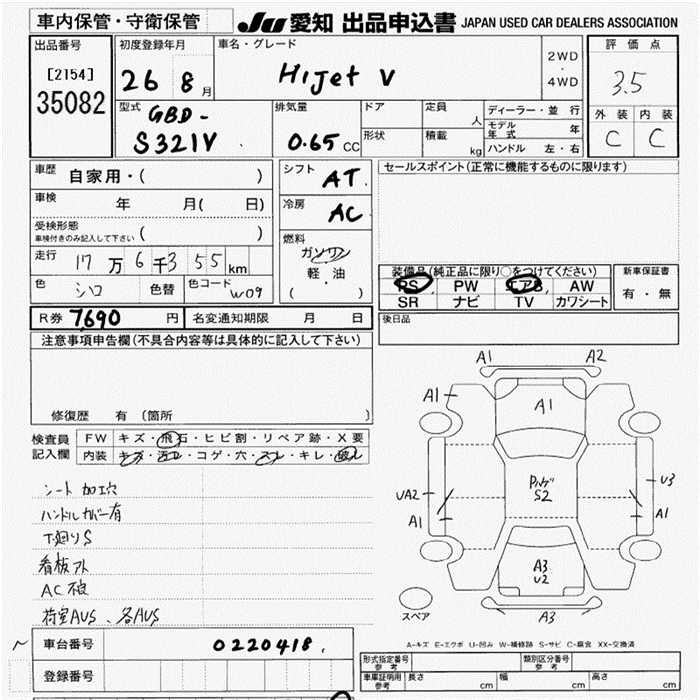 車内保管・守衛保管
JU 愛知 出品申込書 JAPAN USED CAR DEALERS ASSOCIATION
出品番号
[2154]
35082
初度登録年月
26 8 月
車名・グレード
Hijet V
2WD
・
4WD
評価点
3.5
外装 内装
C C
型式
GBD-
S321V
排気量
0.65 CC
ドア
形状
定員
人
積載
kg
ディーラー・並行
モデル年式 年
ハンドル 左・右
車歴
自家用・( )
車検
年 月( 日)
受検形態
車検付きのみ記入して下さい ( )
走行 17 万 6 千 3 55 km
色 シロ 色替 色コード W09
シフト
AT
冷房
AC
燃料
ガソリン
・
軽油
( )
セールスポイント(正常に機能するものに限ります)
装備品(純正品に限り○をつけてください)
PS PW エアB AW
SR ナビ TV カワシート
新車保証書
有・無
R券 7,690 円 名変通知期限 月 日
後日品
注意事項申告欄(不具合内容等は具体的に記入して下さい)
修復歴 有 (箇所 )
検査員
記入欄
FW キズ・飛石・ヒビ割・リペア跡・X要
内装 キズ・汚コレ・コゲ・穴・スレ・キレ・破レ
シート加工穴
ハンドルカバー有
下廻りS
看板アト
AC不良
荷室AUS、各AUS
車台番号 0220418
登録番号
A1 A2
A1
A1
UA2
A1
S2
U3
A1
A3
U2
A3
スペア
A-キズ E-エクボ U-凹み W-補修跡 S-サビ C-腐食 XX-交換済
形式指定番号
参考
類別区分番号
参考
車庫証明用
参考
長さ cm 幅 cm 高さ cm